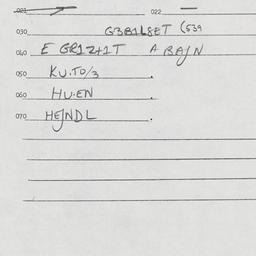 021 022
030 G3B1L8ET (539
040 E GR1Z+1T A BAJN
050 KU.TO/3 .
060 HU.EN .
070 HEJNDL .